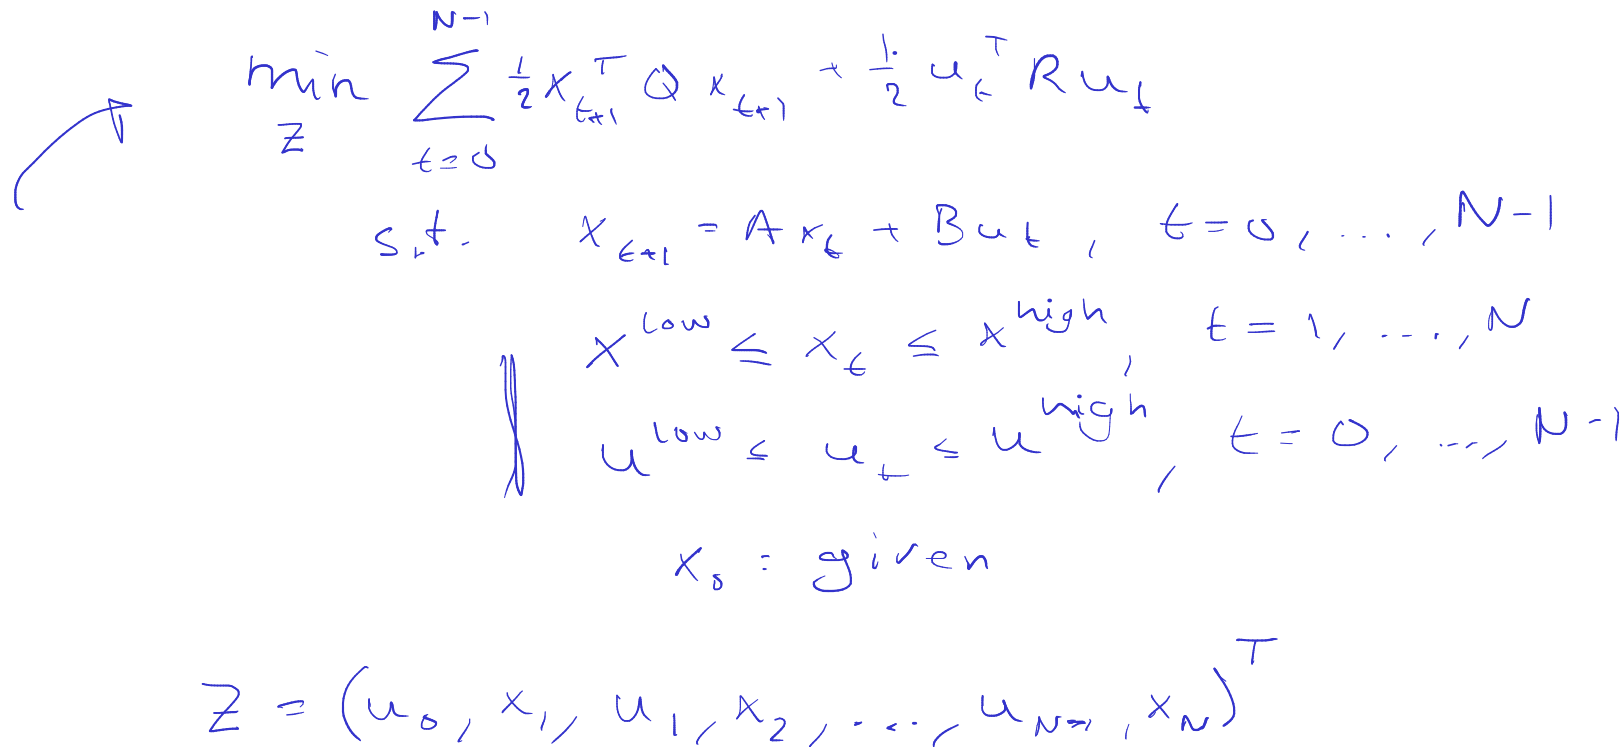 min_z Σ_{t=0}^{N-1} ½ x_{t+1}^T Q x_{t+1} + ½ u_t^T R u_t
s.t. x_{t+1} = A x_t + B u_t , t=0, ..., N-1
x^{low} ≤ x_t ≤ x^{high}, t = 1, ..., N
u^{low} ≤ u_t ≤ u^{high}, t = 0, ..., N-1
x_0 = given
z = (u_0, x_1, u_1, x_2, ..., u_{N-1}, x_N)^T